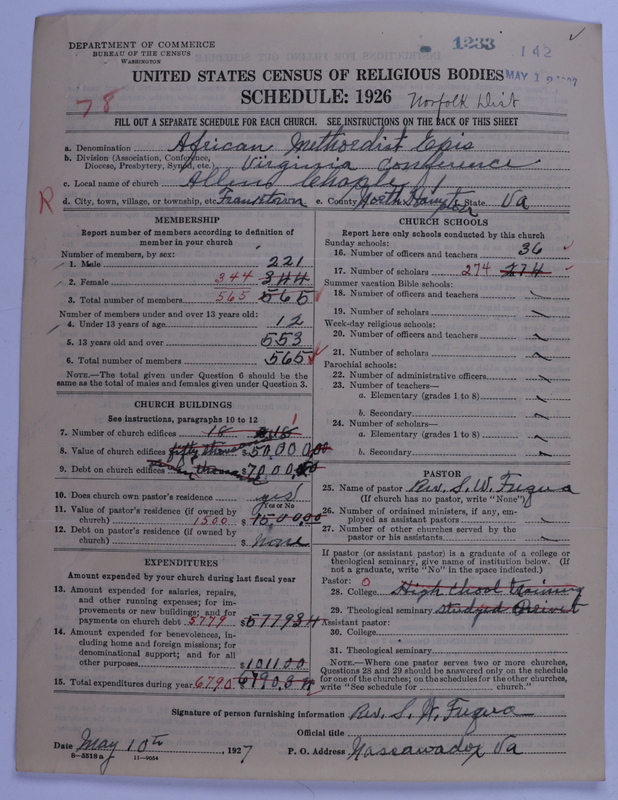 DEPARTMENT OF COMMERCE
BUREAU OF THE CENSUS
WASHINGTON
1233
142
UNITED STATES CENSUS OF RELIGIOUS BODIES
MAY 1
SCHEDULE: 1926
78
Norfolk Dist
FILL OUT A SEPARATE SCHEDULE FOR EACH CHURCH. SEE INSTRUCTIONS ON THE BACK OF THIS SHEET
a. Denomination African Methodist Epis
b. Division (Association, Conference, Diocese, Presbytery, Synod, etc.) Virginia Conference
c. Local name of church Allens Chaple
R
d. City, town, village, or township, etc. Franktown e. County North Hampton f. State Va
MEMBERSHIP
Report number of members according to definition of
member in your church
Number of members, by sex:
1. Male 221
2. Female 344 344
3. Total number of members 565 565
Number of members under and over 13 years old:
4. Under 13 years of age 12
5. 13 years old and over 553
6. Total number of members 565
NOTE.—The total given under Question 6 should be the
same as the total of males and females given under Question 3.
CHURCH BUILDINGS
See instructions, paragraphs 10 to 12
1
7. Number of church edifices 18 18
8. Value of church edifices fifty thousand $50,000,00
9. Debt on church edifices $7000,00
10. Does church own pastor's residence yes
Yes or No
11. Value of pastor's residence (if owned by
church) 1500 $1500,00
12. Debt on pastor's residence (if owned by
church) $ None
EXPENDITURES
Amount expended by your church during last fiscal year
13. Amount expended for salaries, repairs,
and other running expenses; for im-
provements or new buildings; and for
payments on church debt 5779 $577934
14. Amount expended for benevolences, in-
cluding home and foreign missions; for
denominational support; and for all
other purposes $101100
15. Total expenditures during year 6790 $6790,34
CHURCH SCHOOLS
Report here only schools conducted by this church
Sunday schools:
16. Number of officers and teachers 36
17. Number of scholars 274 274
Summer vacation Bible schools:
18. Number of officers and teachers
19. Number of scholars
Week-day religious schools:
20. Number of officers and teachers
21. Number of scholars
Parochial schools:
22. Number of administrative officers
23. Number of teachers—
a. Elementary (grades 1 to 8)
b. Secondary
24. Number of scholars—
a. Elementary (grades 1 to 8)
b. Secondary
PASTOR
25. Name of pastor Rev. S. W. Fugua
(If church has no pastor, write "None")
26. Number of ordained ministers, if any, em-
ployed as assistant pastors
27. Number of other churches served by the
pastor or his assistants
If pastor (or assistant pastor) is a graduate of a college or
theological seminary, give name of institution below. (If
not a graduate, write "No" in the space indicated.)
Pastor: 0
28. College High Chool training
29. Theological seminary studyed
Assistant pastor:
30. College
31. Theological seminary
NOTE.—Where one pastor serves two or more churches,
Questions 28 and 29 should be answered only on the schedule
for one of the churches; on the schedules for the other churches,
write "See schedule for church."
Signature of person furnishing information Rev. S. W. Fugua
Official title
Date May 10th, 1927 P. O. Address Nassawadox Va
8—5518a 11—9054